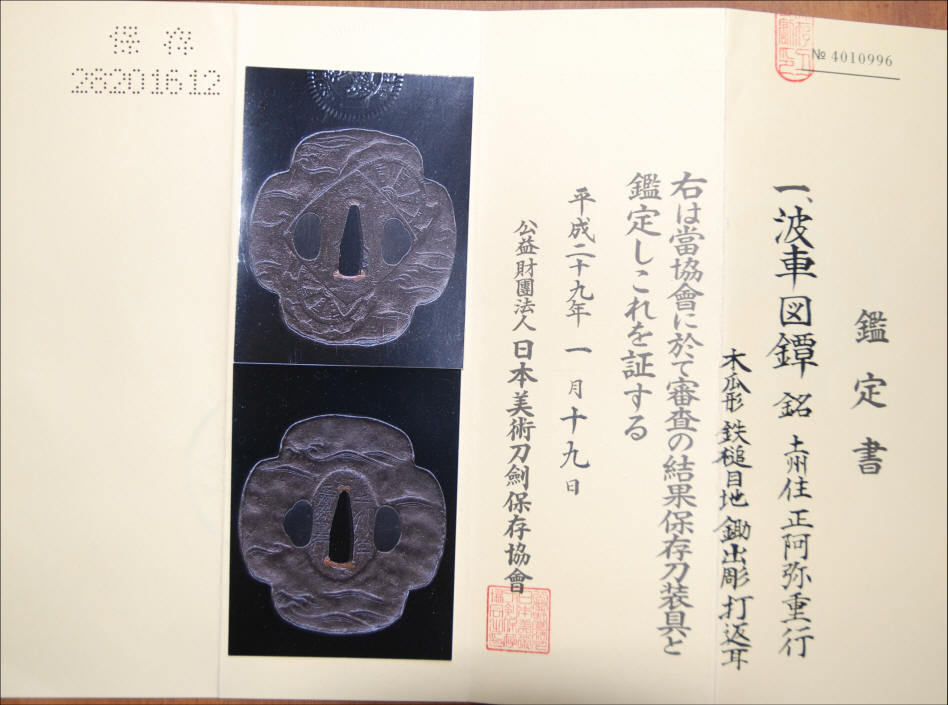 № 4010996
鑑定書
一、波車図鐔 銘 土州住正阿弥重行
木瓜形 鉄槌目地 鋤出彫 打返耳
右は當協會に於て審査の結果保存刀装具と
鑑定しこれを証する
平成二十九年一月十九日
公益財團法人 日本美術刀劍保存協會
保存
28201612